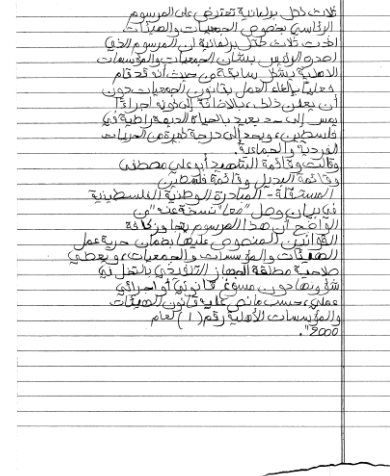 ثلاث كتل برلمانية تعترض على المرسوم
الرئاسي بخصوص الجمعيات والهيئات
أكدت ثلاث كتل برلمانية أن المرسوم الذي
أصدره الرئيس بشأن الجمعيات والمؤسسات
الأهلية يشكل سابقة من حيث أنه قد قام
فعليا بإلغاء العمل بقانون الجمعيات دون
أن يعلن ذلك، بالإضافة إلى كونه إجراءا
يمس إلى حد بعيد بالحياة الديمقراطية في
فلسطين، ويحد إلى درجة كبيرة من الحريات
الفردية والجماعية.
وقالت قائمة الشهيد أبو علي مصطفى
وقائمة البديل وقائمة فلسطين
المستقلة - المبادرة الوطنية الفلسطينية
في بيان وصل "معا" نسخة عنه "من
الواضح أن هذا المرسوم يتجاوز كافة
القوانين المنصوص عليها بضمان حرية عمل
الهيئات والمؤسسات والجمعيات، ويعطي
صلاحية مطلقة للجهاز التنفيذي بالتدخل في
شؤونها دون مسوغ قانوني أو إجرائي
عملي، حسب ما نص عليه قانون الهيئات
والمؤسسات الأهلية رقم (1) لعام
2000".